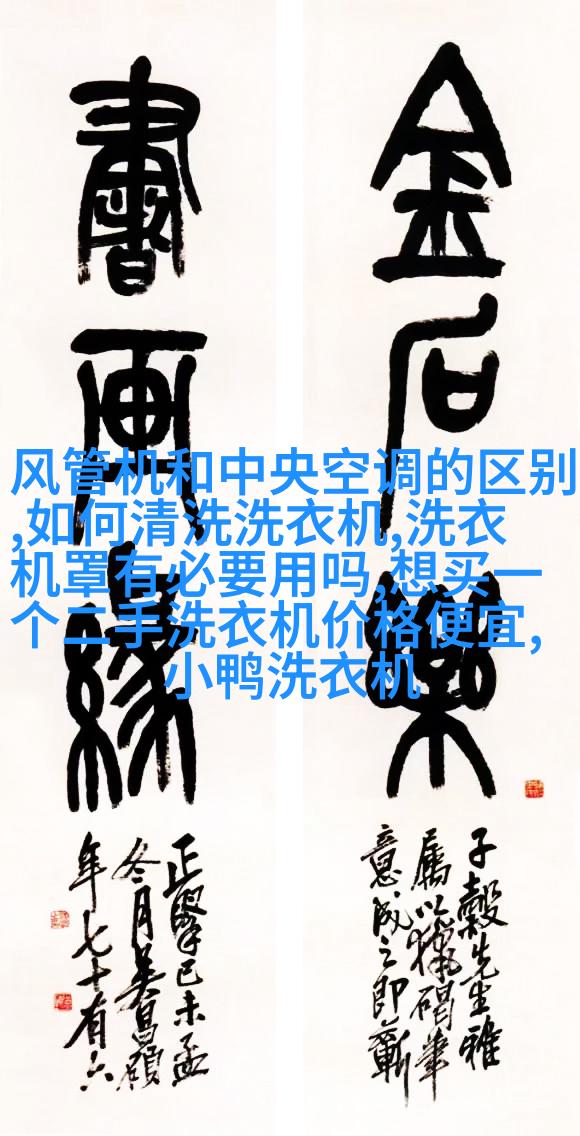 金石樂
子穀先生雅
屬以獵碣筆
意成之即蘄
書畫緣
正己未孟
冬月吳昌碩
年七十有六
风管机和中央空调的区别
,如何清洗洗衣机,洗衣
机罩有必要用吗,想买一
个二手洗衣机价格便宜,
小鸭洗衣机